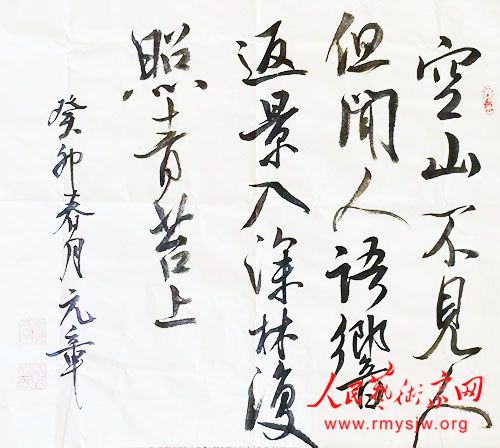 空山不見人
但聞人語響
返景入深林復
照青苔上
癸卯春月元章
人民藝術家网
www.rmysjw.org